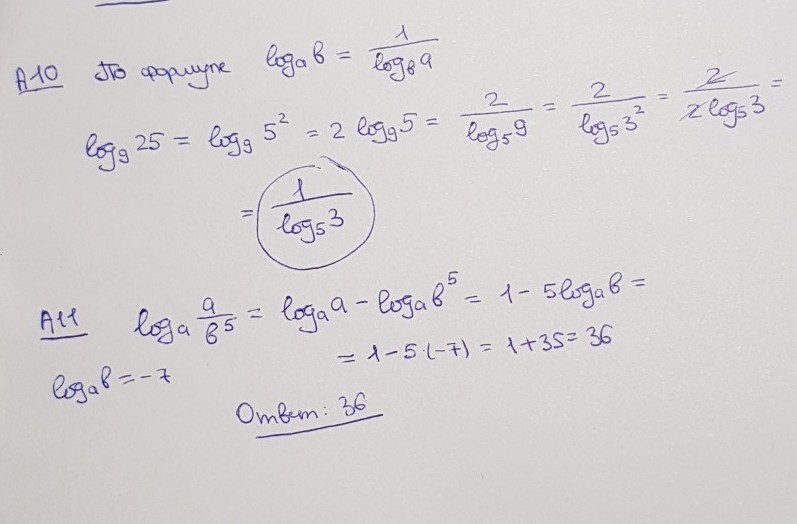 А10 По формуле logₐb = 1/log_b a
log₉25 = log₉5² = 2 log₉5 = 2/log₅9 = 2/log₅3² = 2/2log₅3 =
= 1/log₅3
А11 logₐ a/b⁵ = logₐa - logₐb⁵ = 1 - 5logₐb =
= 1 - 5·(-7) = 1 + 35 = 36
logₐb = -7
Ответ: 36